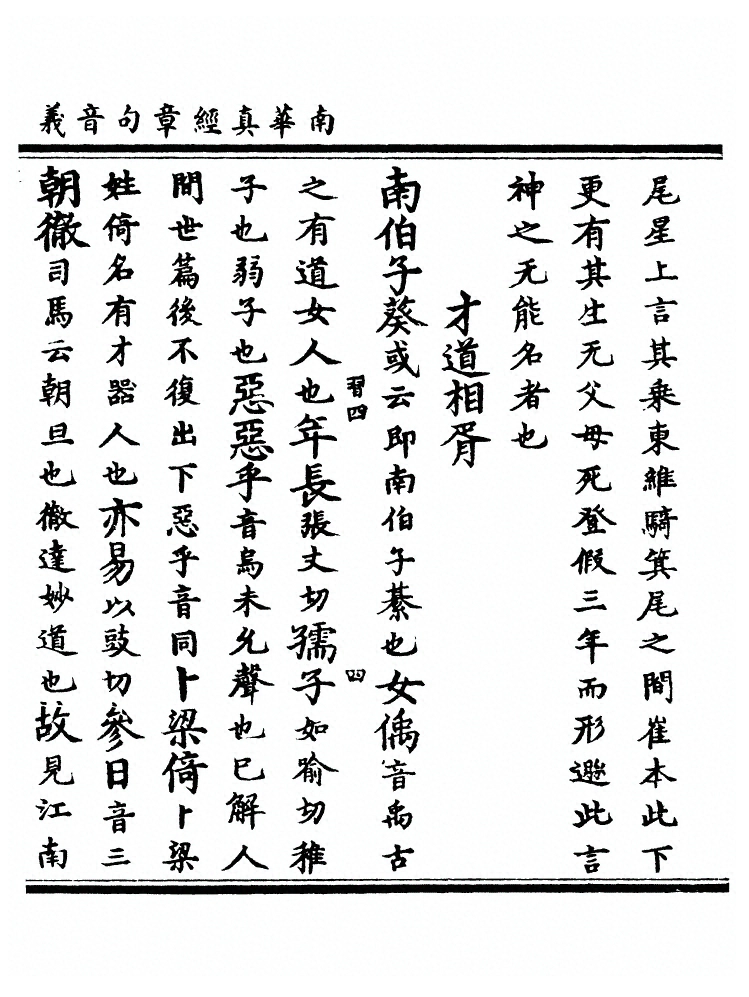 南華真經章句音義
尾星上言其乘東維騎箕尾之間崔本此下
更有其生无父母死登假三年而形遯此言
神之无能名者也
才道相胥
南伯子葵或云即南伯子綦也女偊音禹古
之有道女人也年長張丈切孺子如喻切稚
習四
四
子也弱子也惡惡乎音烏未允聲也已解人
間世篇後不復出下惡乎音同卜梁倚卜梁
姓倚名有才器人也亦易以豉切參日音三
朝徹司馬云朝旦也徹達妙道也故見江南